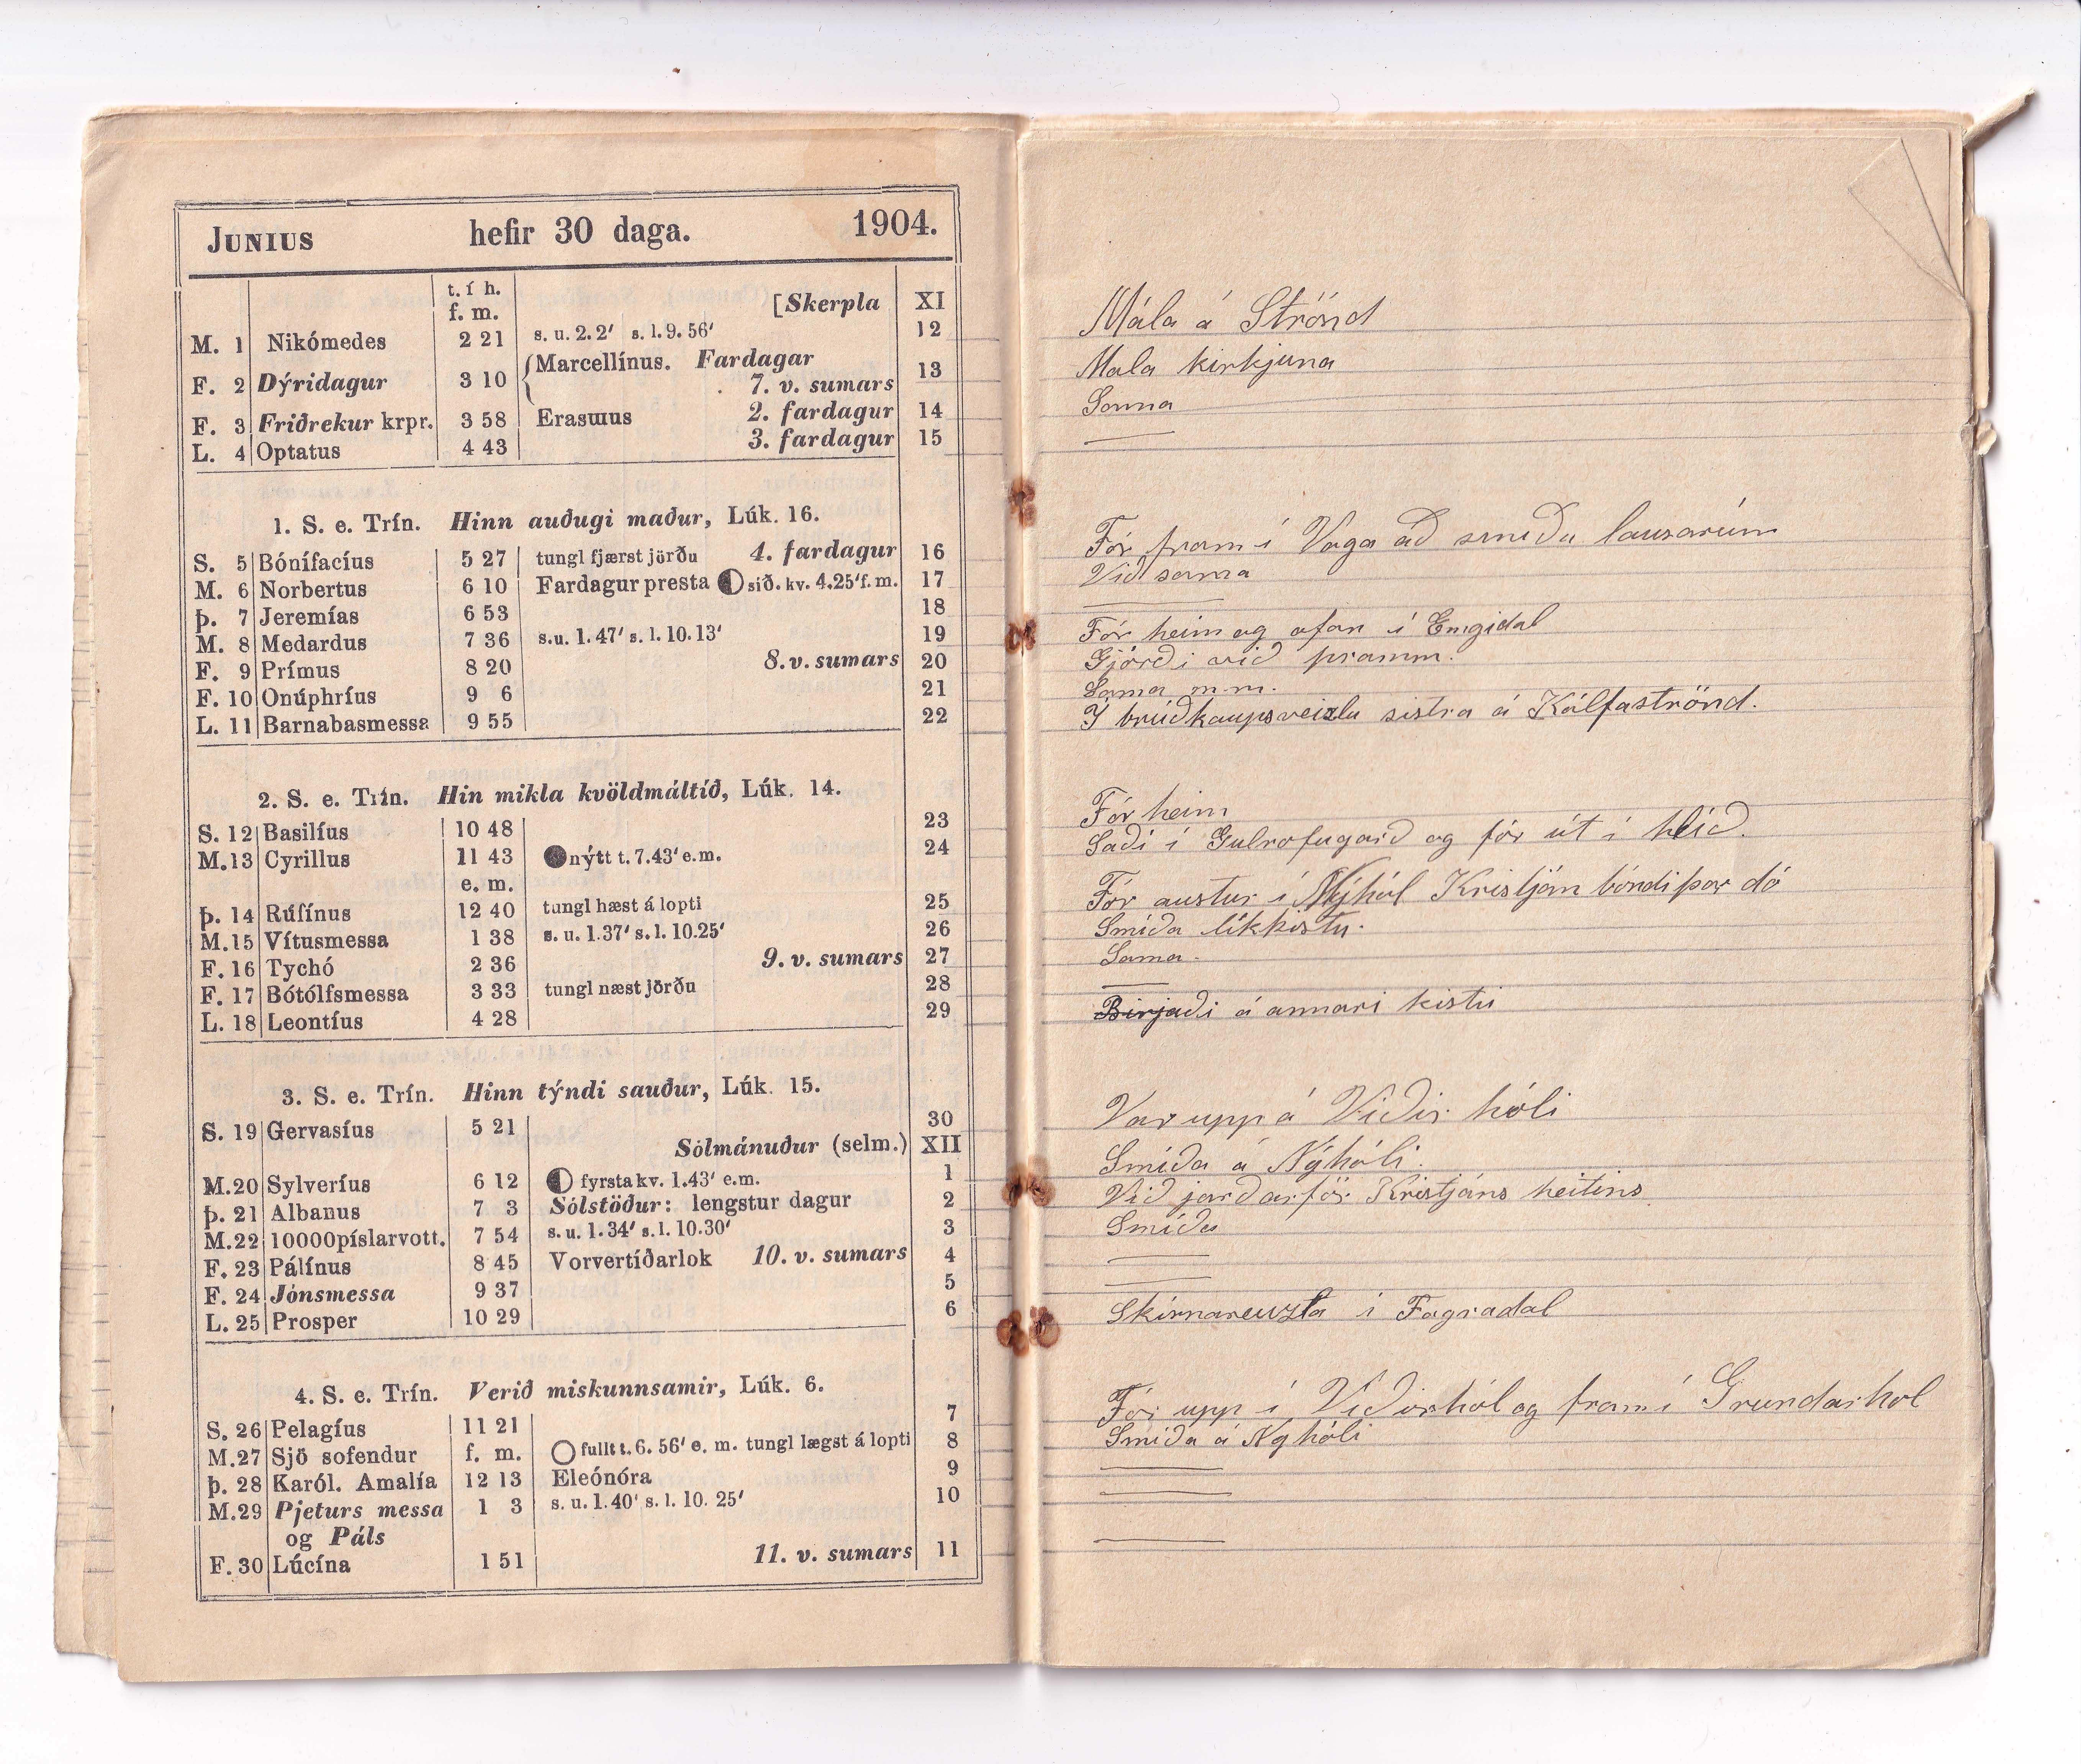 JUNIUS hefir 30 daga. 1904.
t. í h.
f. m. [Skerpla XI
M. 1 Nikómedes 2 21 s. u. 2. 2' s. l. 9. 56' 12
F. 2 Dýridagur 3 10 {Marcellínus. Fardagar
7. v. sumars 13
F. 3 Friðrekur krpr. 3 58 Erasmus 2. fardagur 14
L. 4 Optatus 4 43 3. fardagur 15
1. S. e. Trín. Hinn auðugi maður, Lúk. 16.
S. 5 Bónífacíus 5 27 tungl fjærst jörðu 4. fardagur 16
M. 6 Norbertus 6 10 Fardagur presta síð. kv. 4.25' f. m. 17
Þ. 7 Jeremías 6 53 18
M. 8 Medardus 7 36 s. u. 1. 47' s. l. 10. 13' 19
F. 9 Prímus 8 20 8. v. sumars 20
F. 10 Onúphríus 9 6 21
L. 11 Barnabasmessa 9 55 22
2. S. e. Trín. Hin mikla kvöldmáltíð, Lúk. 14.
S. 12 Basilíus 10 48 23
M. 13 Cyrillus 11 43 nýtt t. 7.43' e. m. 24
e. m.
Þ. 14 Rúfínus 12 40 tungl hæst á lopti 25
M. 15 Vítusmessa 1 38 s. u. 1.37' s. l. 10.25' 26
F. 16 Tychó 2 36 9. v. sumars 27
F. 17 Bótólfsmessa 3 33 tungl næst jörðu 28
L. 18 Leontíus 4 28 29
3. S. e. Trín. Hinn týndi sauður, Lúk. 15.
S. 19 Gervasíus 5 21 30
Sólmánuður (selm.) XII
M. 20 Sylveríus 6 12 fyrsta kv. 1.43' e. m. 1
Þ. 21 Albanus 7 3 Sólstöður: lengstur dagur 2
M. 22 10000píslarvott. 7 54 s. u. 1. 34' s. l. 10. 30' 3
F. 23 Pálínus 8 45 Vorvertíðarlok 10. v. sumars 4
F. 24 Jónsmessa 9 37 5
L. 25 Prosper 10 29 6
4. S. e. Trín. Verið miskunnsamir, Lúk. 6.
S. 26 Pelagíus 11 21 7
M. 27 Sjö sofendur f. m. fullt t. 6. 56' e. m. tungl lægst á lopti 8
Þ. 28 Karól. Amalía 12 13 Eleónóra 9
M. 29 Pjeturs messa 1 3 s. u. 1. 40' s. l. 10. 25' 10
og Páls
F. 30 Lúcína 1 51 11. v. sumars 11
Mála á Strönd
Mala kirkjuna
Sama
Fór fram í Voga að smiða lausarúm
Við sama
Fór heim og ofan í Engidal
Gjörði við pramm.
Sama m m.
Í brúðkaupsveizlu sistra á Kálfaströnd.
Fór heim
Saði í Gulrofugarð og fór út í hlíð.
Fór austur í Nýhól Kristján bóndi þar dó
Smíða líkkistu.
Sama.
Birjaði á annari kistu
Var upp á Viðir hóli
Smíða á Nýhóli.
Við jarðarför Kristjáns heitins
Smíða
Skírnarveizla í Fagradal
Fór upp í Víðirhól og fram í Grundarhol
Smíða á Nyhóli